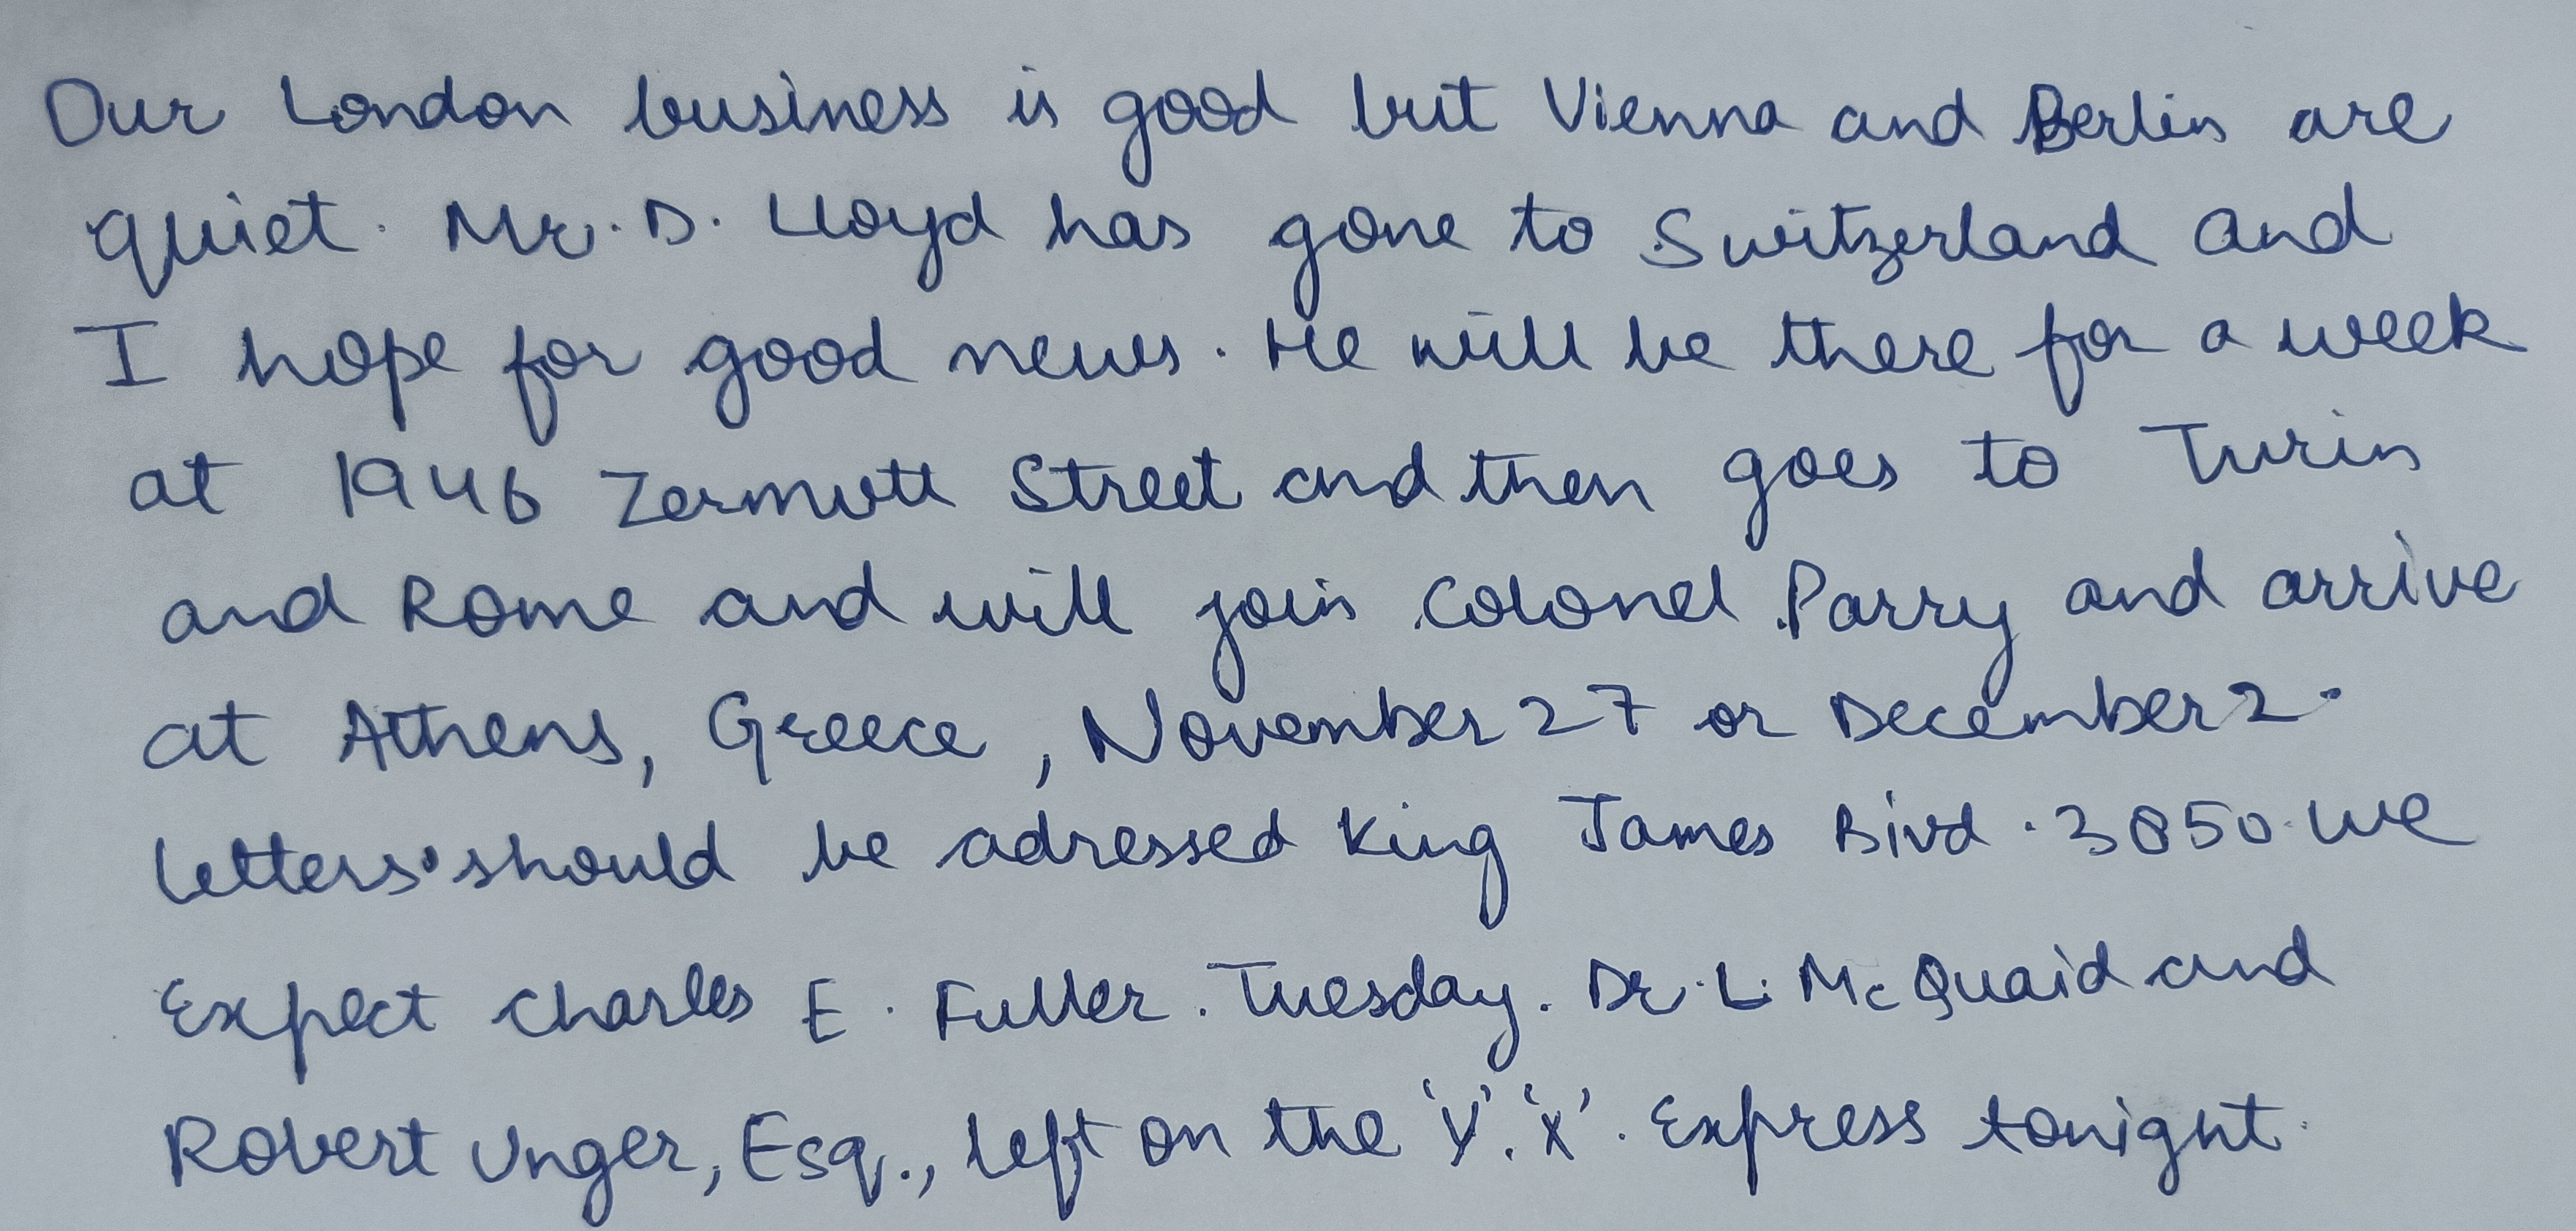 Our London business is good but Vienna and Berlin are
quiet. Mr. D. Lloyd has gone to Switzerland and
I hope for good news. He will be there for a week
at 1946 Zermott Street and then goes to Turin
and Rome and will join Colonel Parry and arrive
at Athens, Greece, November 27 or December 2.
Letters should be adressed King James Bivd. 3850. We
Expect Charles E. Fuller. Tuesday. Dr. L. McQuaid and
Robert Unger, Esq., left on the 'Y'. 'X'. Express tonight.